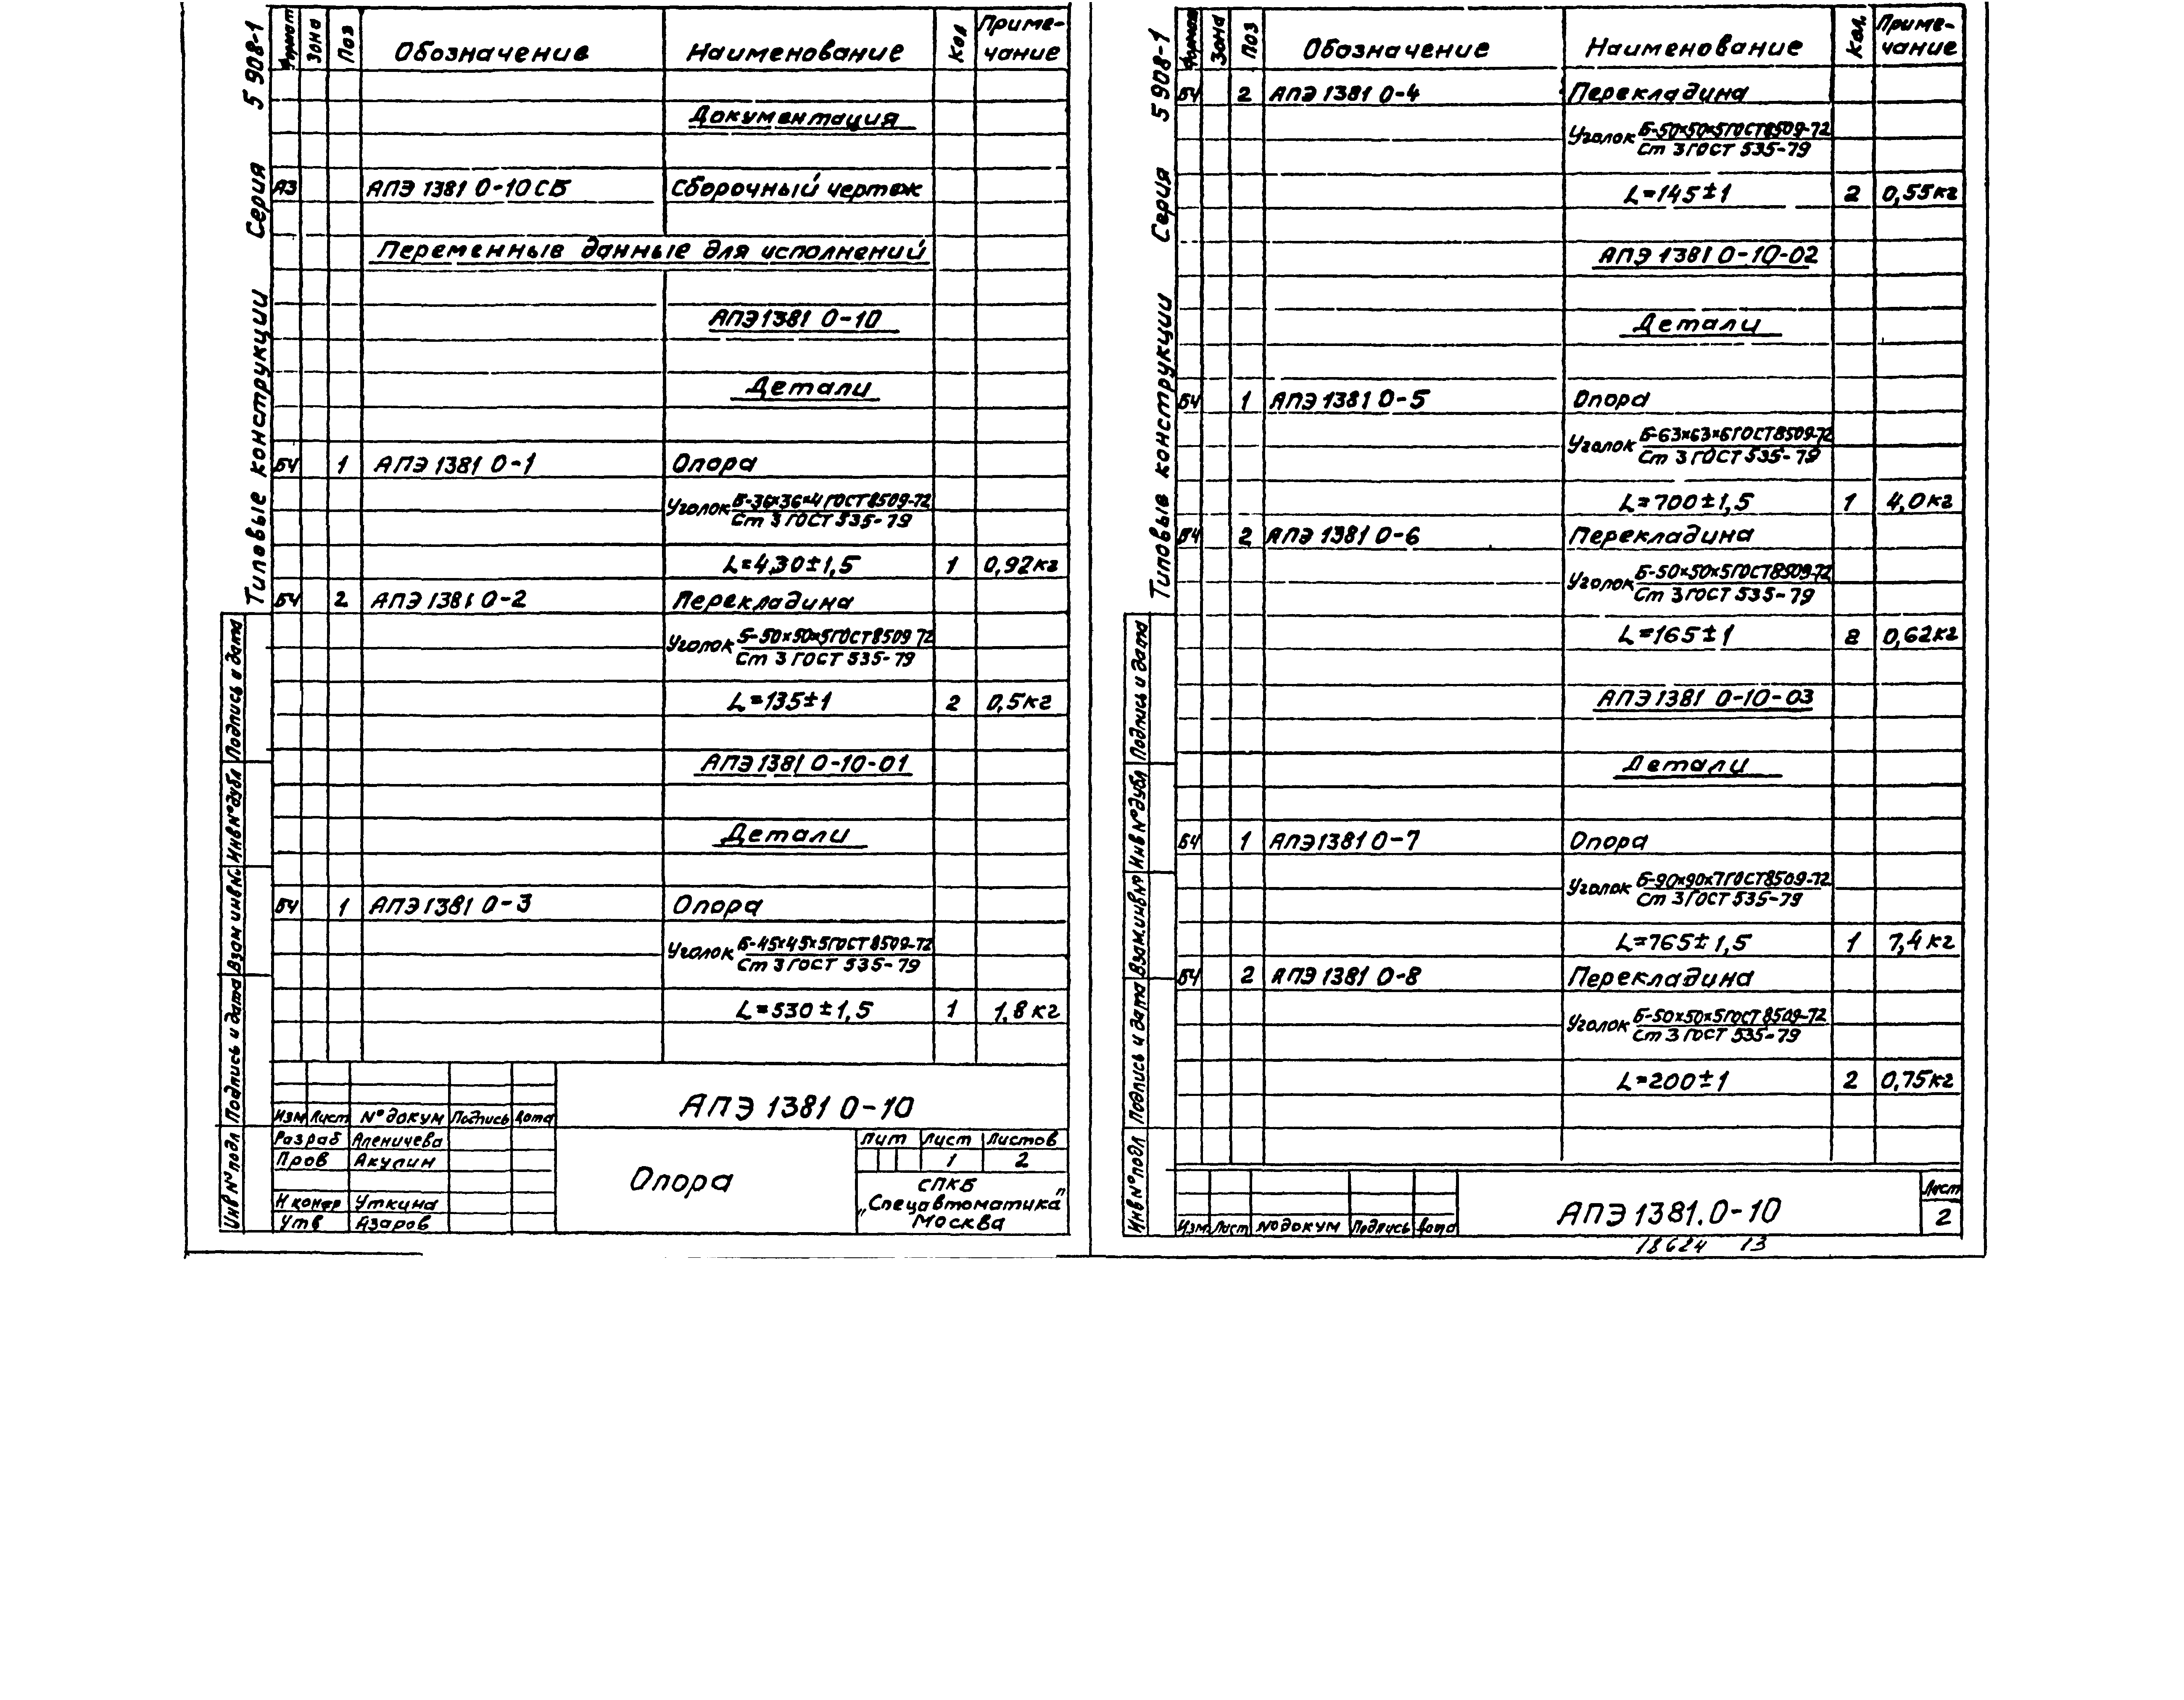 Типовые конструкции Серия 5 908-1
Формат Зона Поз Обозначение Наименование Кол Приме-чание
Документация
А3 АПЭ 1381 0-10 СБ Сборочный чертеж
Переменные данные для исполнений
АПЭ 1381 0-10
Детали
БЧ 1 АПЭ 1381 0-1 Опора
Уголок Б-36×36×4 ГОСТ 8509-72
Ст 3 ГОСТ 535-79
L=430±1,5 1 0,92кг
БЧ 2 АПЭ 1381 0-2 Перекладина
Уголок Б-50×50×5 ГОСТ 8509 72
Ст 3 ГОСТ 535-79
L=135±1 2 0,5кг
АПЭ 1381 0-10-01
Детали
БЧ 1 АПЭ 1381 0-3 Опора
Уголок Б-45×45×5 ГОСТ 8509-72
Ст 3 ГОСТ 535-79
L=530±1,5 1 1,8кг
Подпись и дата
Инв № дубл
Взам инв №
Подпись и дата
Инв № подл
АПЭ 1381 0-10
Изм Лист № докум Подпись Дата
Разраб Аленичева
Пров Акулин
Н контр Уткина
Утв Азаров
Опора
Лит Лист Листов
1 2
СПКБ
„Спецавтоматика"
Москва
Типовые конструкции Серия 5 908-1
Формат Зона Поз Обозначение Наименование Кол. Приме-чание
БЧ 2 АПЭ 1381 0-4 Перекладина
Уголок Б-50×50×5 ГОСТ 8509-72
Ст 3 ГОСТ 535-79
L=145±1 2 0,55кг
АПЭ 1381 0-10-02
Детали
БЧ 1 АПЭ 1381 0-5 Опора
Уголок Б-63×63×6 ГОСТ 8509-72
Ст 3 ГОСТ 535-79
L=700±1,5 1 4,0кг
БЧ 2 АПЭ 1381 0-6 Перекладина
Уголок Б-50×50×5 ГОСТ 8509-72
Ст 3 ГОСТ 535-79
L=165±1 2 0,62кг
АПЭ 1381 0-10-03
Детали
БЧ 1 АПЭ 1381 0-7 Опора
Уголок Б-90×90×7 ГОСТ 8509-72
Ст 3 ГОСТ 535-79
L=765±1,5 1 7,4кг
БЧ 2 АПЭ 1381 0-8 Перекладина
Уголок Б-50×50×5 ГОСТ 8509-72
Ст 3 ГОСТ 535-79
L=200±1 2 0,75кг
Подпись и дата
Инв № дубл
Взам. инв №
Подпись и дата
Инв № подл
Изм. Лист № докум Подпись Дата
АПЭ 1381.0-10
Лист
2
18624 13